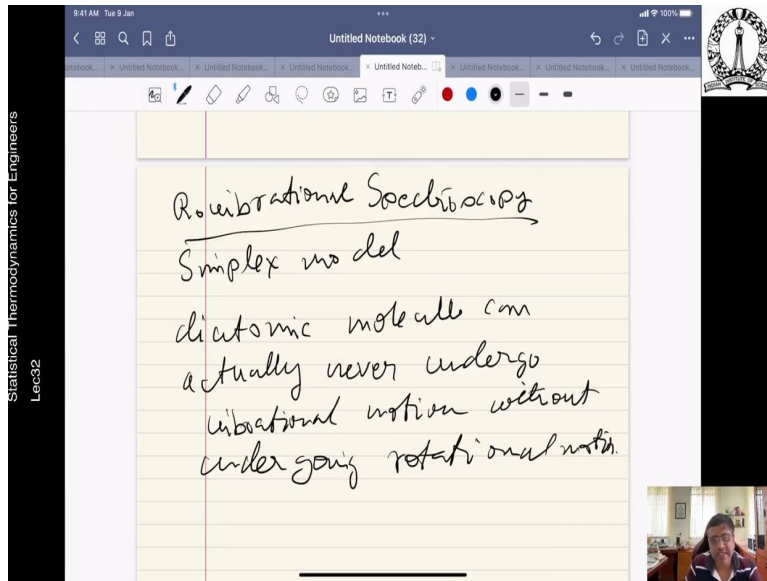 9:41 AM Tue 9 Jan
100%
Untitled Notebook (32)
otebook... × Untitled Notebook... × Untitled Notebook... × Untitled Notebook... × Untitled Noteb... × Untitled Notebook... × Untitled Notebook... × Untitled Notebook...
Statistical Thermodynamics for Engineers
Lec32
Rovibrational Spectroscopy
Simplex model
diatomic molecule can
actually never undergo
vibrational motion without
undergoing rotational motion.